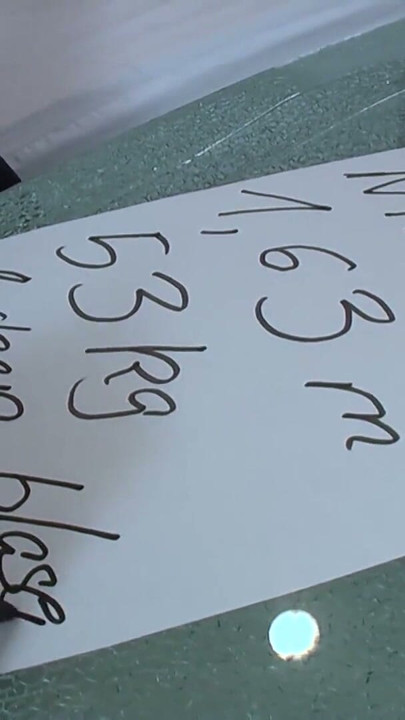 1,63 m
53 kg
blase